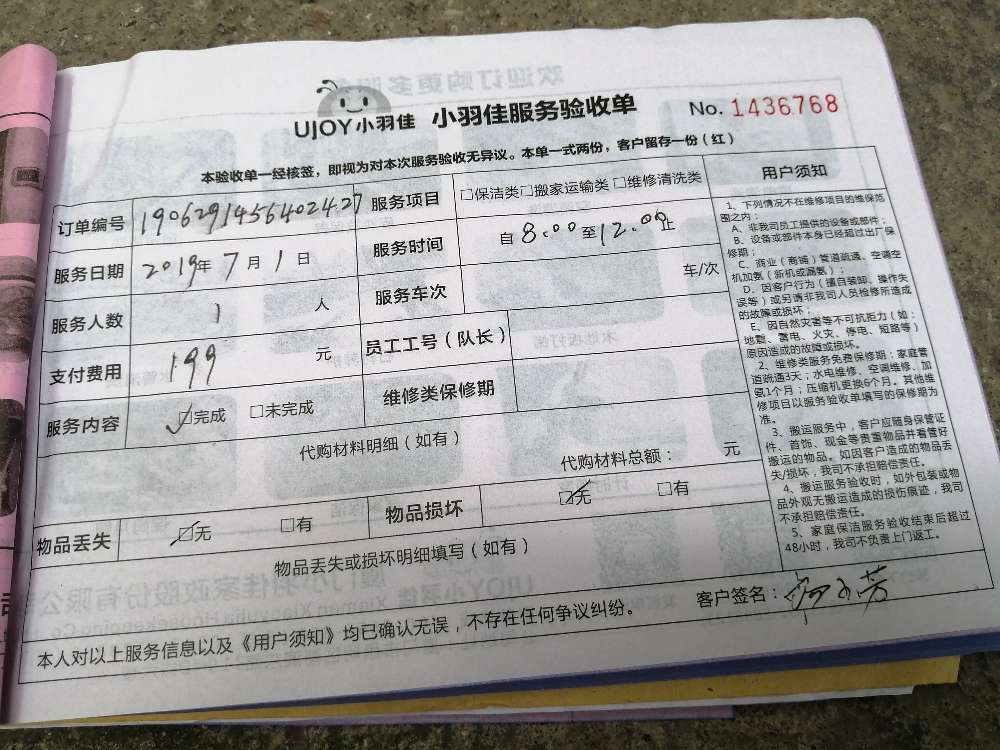 UJOY小羽佳 小羽佳服务验收单 No. 1436768
本验收单一经核签，即视为对本次服务验收无异议。本单一式两份，客户留存一份（红）
订单编号 1906291456402427 服务项目 □保洁类□搬家运输类□维修清洗类
服务日期 2019年7月1日 服务时间 自8:00至12:00止
服务人数 1 人 服务车次 车/次
支付费用 199 元 员工工号（队长）
服务内容 ☑完成 □未完成 维修类保修期
代购材料明细（如有）
代购材料总额： 元
物品丢失 ☑无 □有 物品损坏 ☑无 □有
物品丢失或损坏明细填写（如有）
客户签名：
本人对以上服务信息以及《用户须知》均已确认无误，不存在任何争议纠纷。
用户须知
1、下列情况不在维修项目的维保范
围之内：
A、非我司员工提供的设备或部件；
B、设备或部件本身已经超过出厂保
修期；
C、商业（商铺）管道疏通、空调空
机加氨（新机或漏氨）；
D、因客户行为（擅自装卸、操作失
误等）或另请非我司人员检修所造成
的故障或损坏；
E、因自然灾害等不可抗拒力（如：
地震、雷电、火灾、停电、短路等）
原因造成的故障或损坏。
2、维修类服务免费保修期：家庭管
道疏通3天；水电维修、空调维修、加
氨1个月；压缩机更换6个月。其他维
修项目以服务验收单填写的保修期为
准。
3、搬运服务中，客户应随身保管证
件、首饰、现金等贵重物品并看管好
搬运的物品。如因客户造成的物品丢
失/损坏，我司不承担赔偿责任。
4、搬运服务验收时，如外包装或物
品外观无搬运造成的损伤痕迹，我司
不承担赔偿责任。
5、家庭保洁服务验收结束后超过
48小时，我司不负责上门返工。